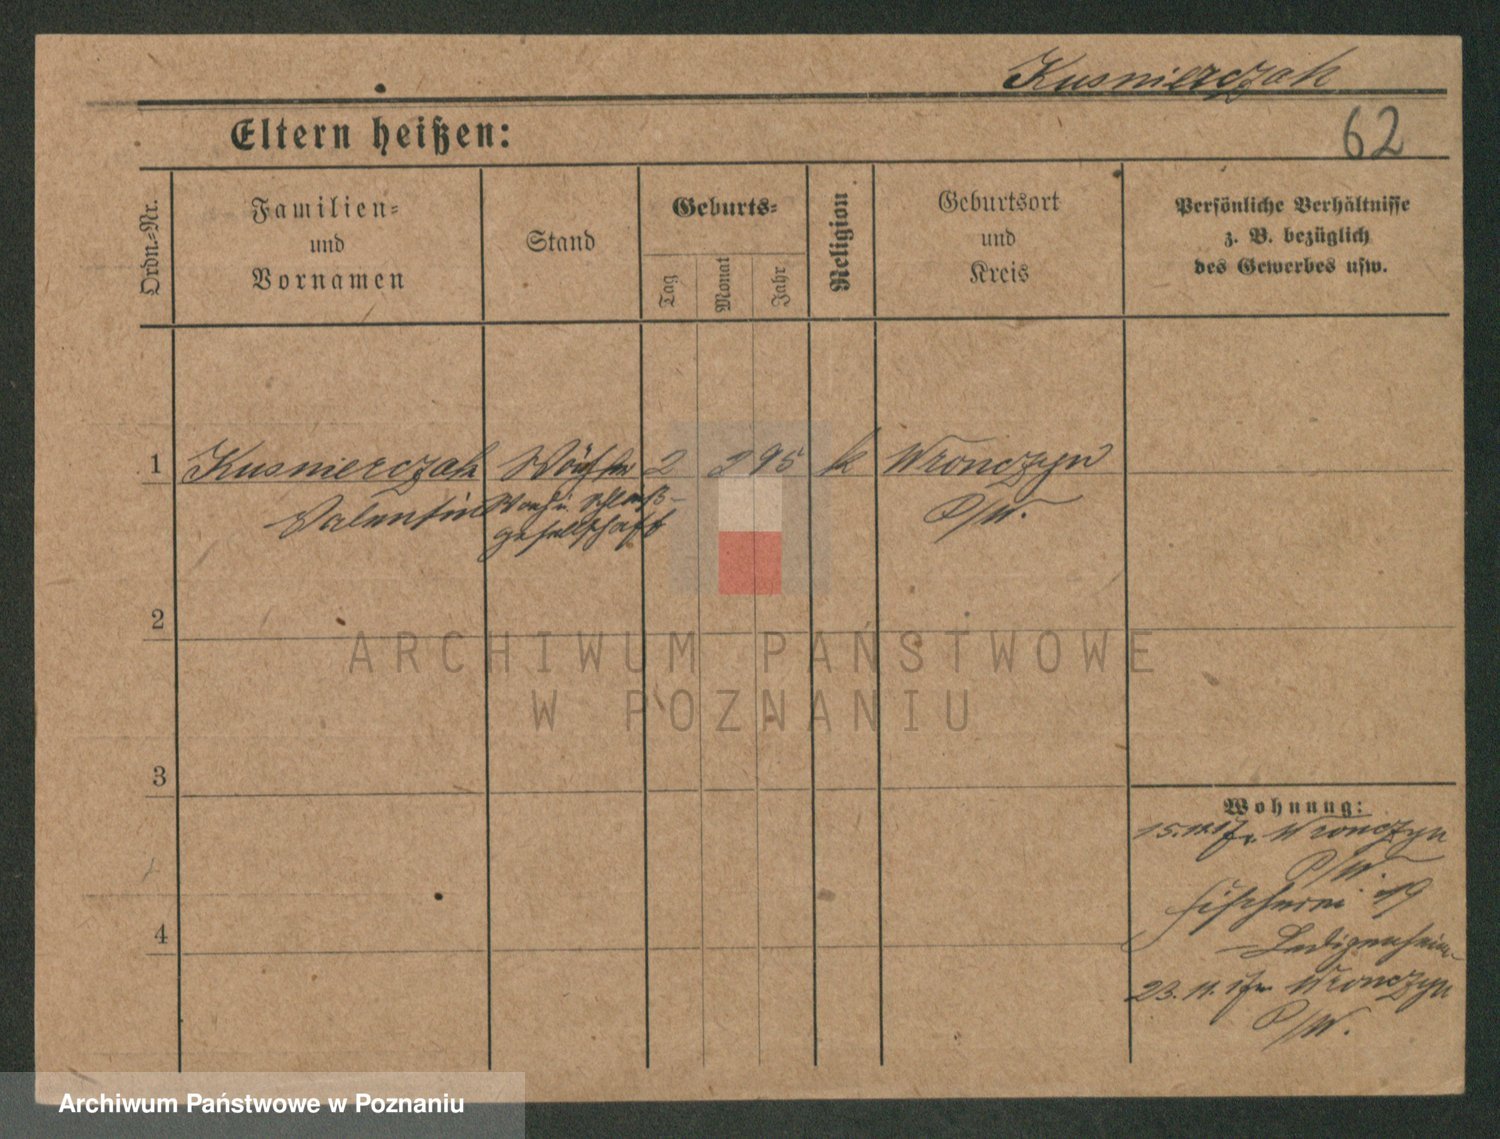 Kusnierczak
Eltern heißen:
62
Ordn.-Nr.
Familien- und Vornamen
Stand
Geburts-
Tag
Monat
Jahr
Religion
Geburtsort und Kreis
Persönliche Verhältnisse z. B. bezüglich des Gewerbes usw.
1
Kusnierczak Wächter 2 2 95 k Wronczyn
Valentin Wach u. Schließ- P/W.
gesellschaft
2
ARCHIWUM PAŃSTWOWE
W POZNANIU
3
Wohnung:
Wronczyn
P/W.
Fischerei 19
Ledigenheim
23. 11. 17 Wronczyn
P/W.
4
Archiwum Państwowe w Poznaniu